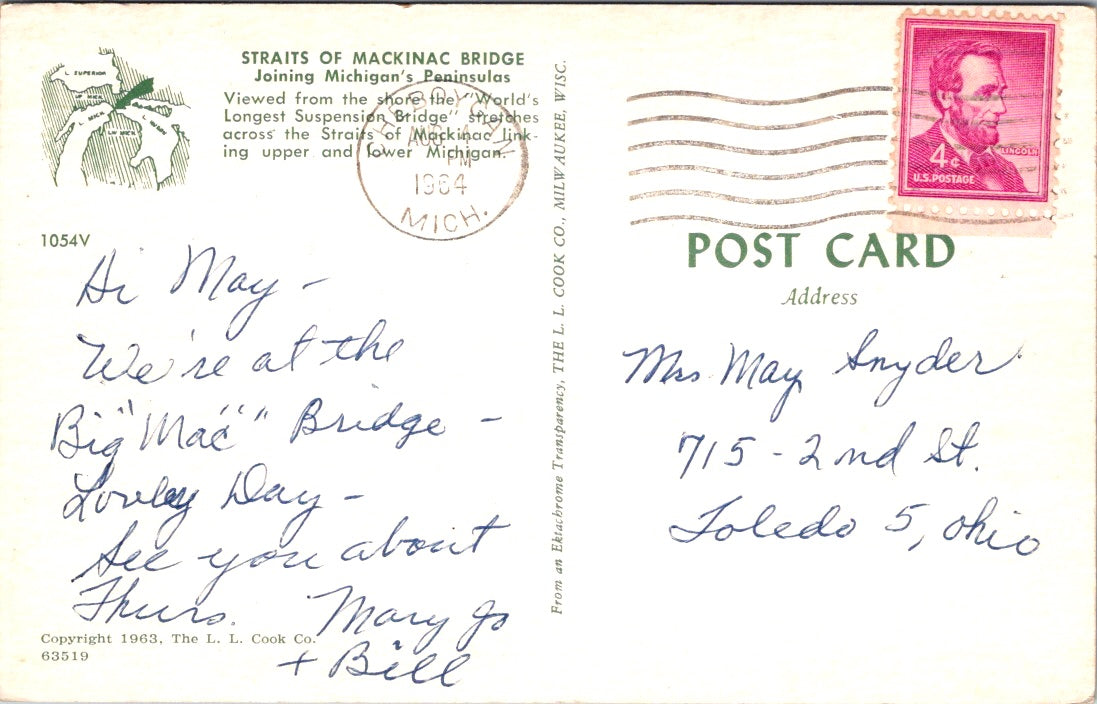 STRAITS OF MACKINAC BRIDGE
Joining Michigan's Peninsulas
Viewed from the shore the "World's
Longest Suspension Bridge" stretches
across the Straits of Mackinac link-
ing upper and lower Michigan.
L. SUPERIOR
UP. MICH.
L. MICH.
L. HURON
LW. MICH.
CHEBOYGAN
AUG 4
PM
1964
MICH.
4¢
LINCOLN
U.S. POSTAGE
1054V
POST CARD
Address
Hi May -
We're at the
Big "Mac" Bridge -
Lovely Day -
See you about
Thurs. Mary Jo
+ Bill
Mrs May Snyder
715 - 2nd St.
Toledo 5, Ohio
From an Ektachrome Transparency, THE L. L. COOK CO., MILWAUKEE, WISC.
Copyright 1963, The L. L. Cook Co.
63519